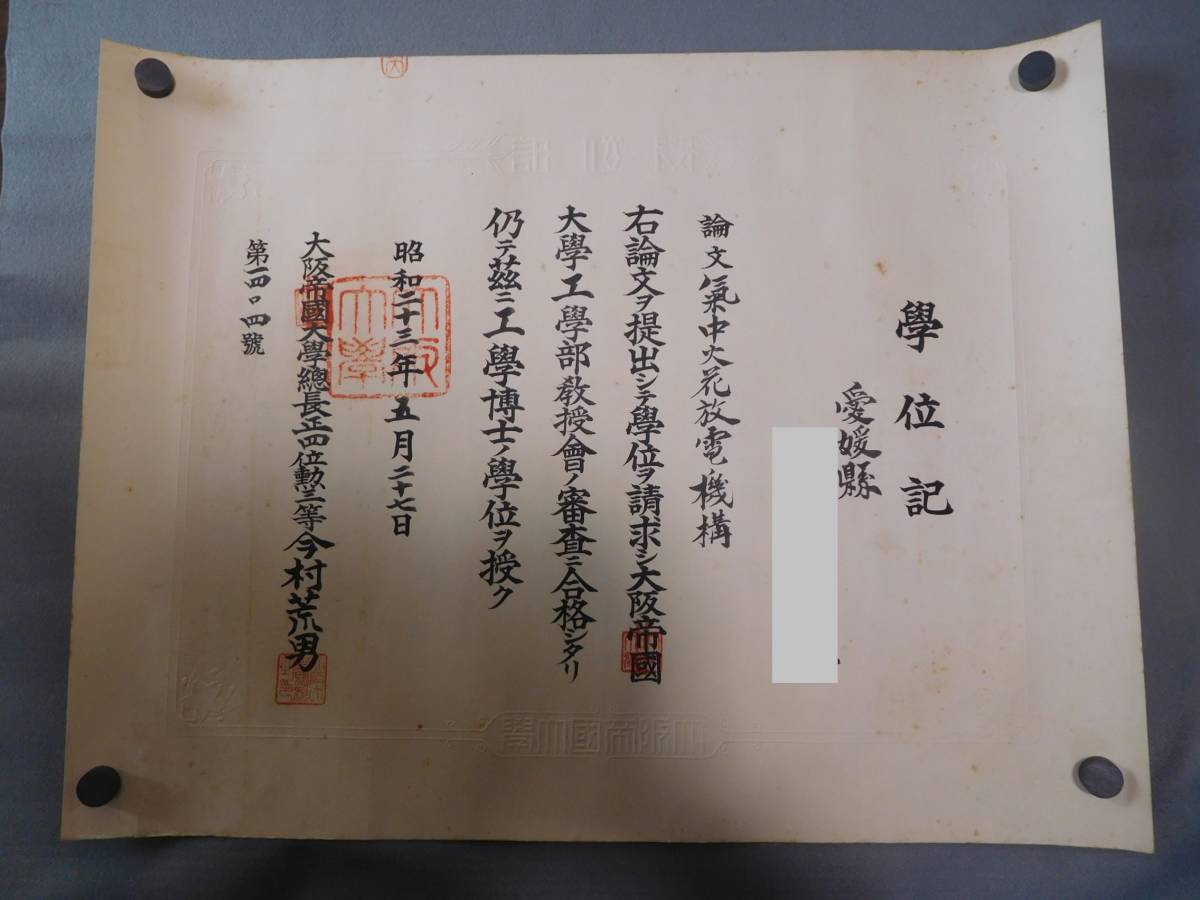 學位記
愛媛縣
論文 氣中火花放電機構
右論文ヲ提出シテ學位ヲ請求シ大阪帝國
大學工學部教授會ノ審査ニ合格シタリ
仍テ茲ニ工學博士ノ學位ヲ授ク
昭和二十三年五月二十七日
大阪帝國大學總長正四位勲三等今村荒男
第一四〇四號
大阪大學
學位記
大阪帝國大學